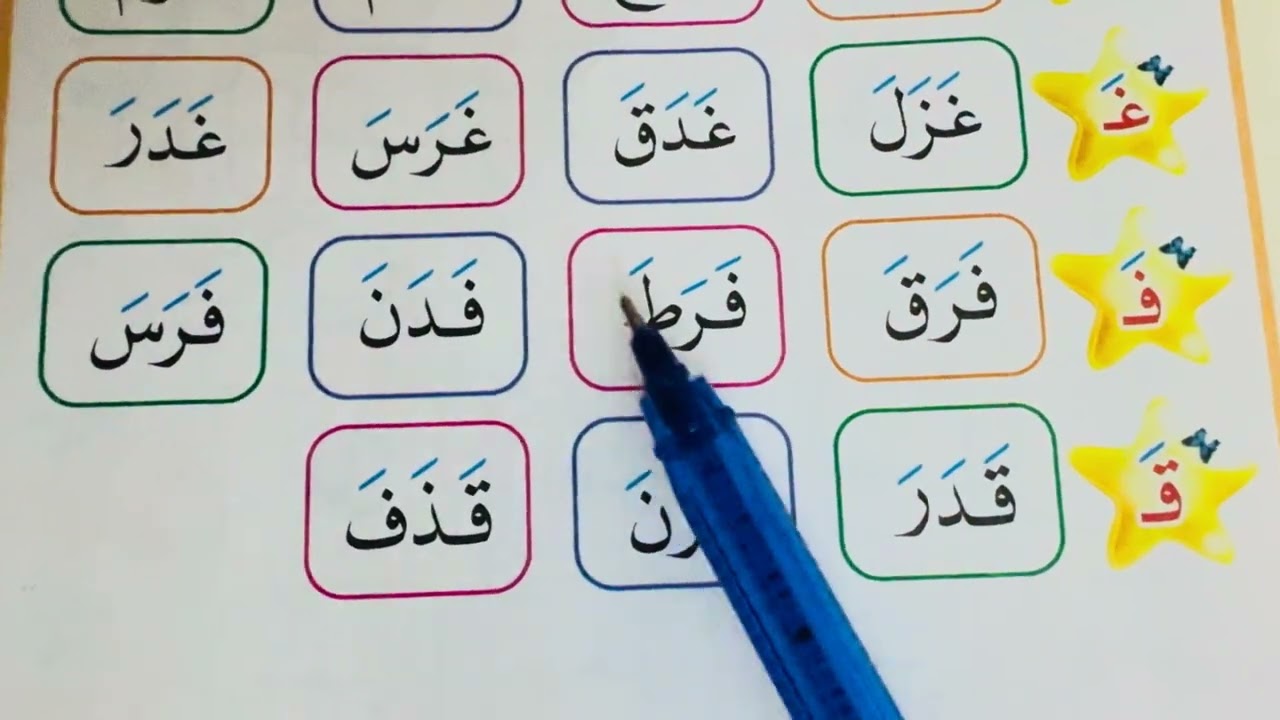 غَـ غَزَلَ غَدَقَ غَرَسَ غَدَرَ
فَـ فَرَقَ فَرَطَ فَدَنَ فَرَسَ
قَـ قَدَرَ قَذَفَ